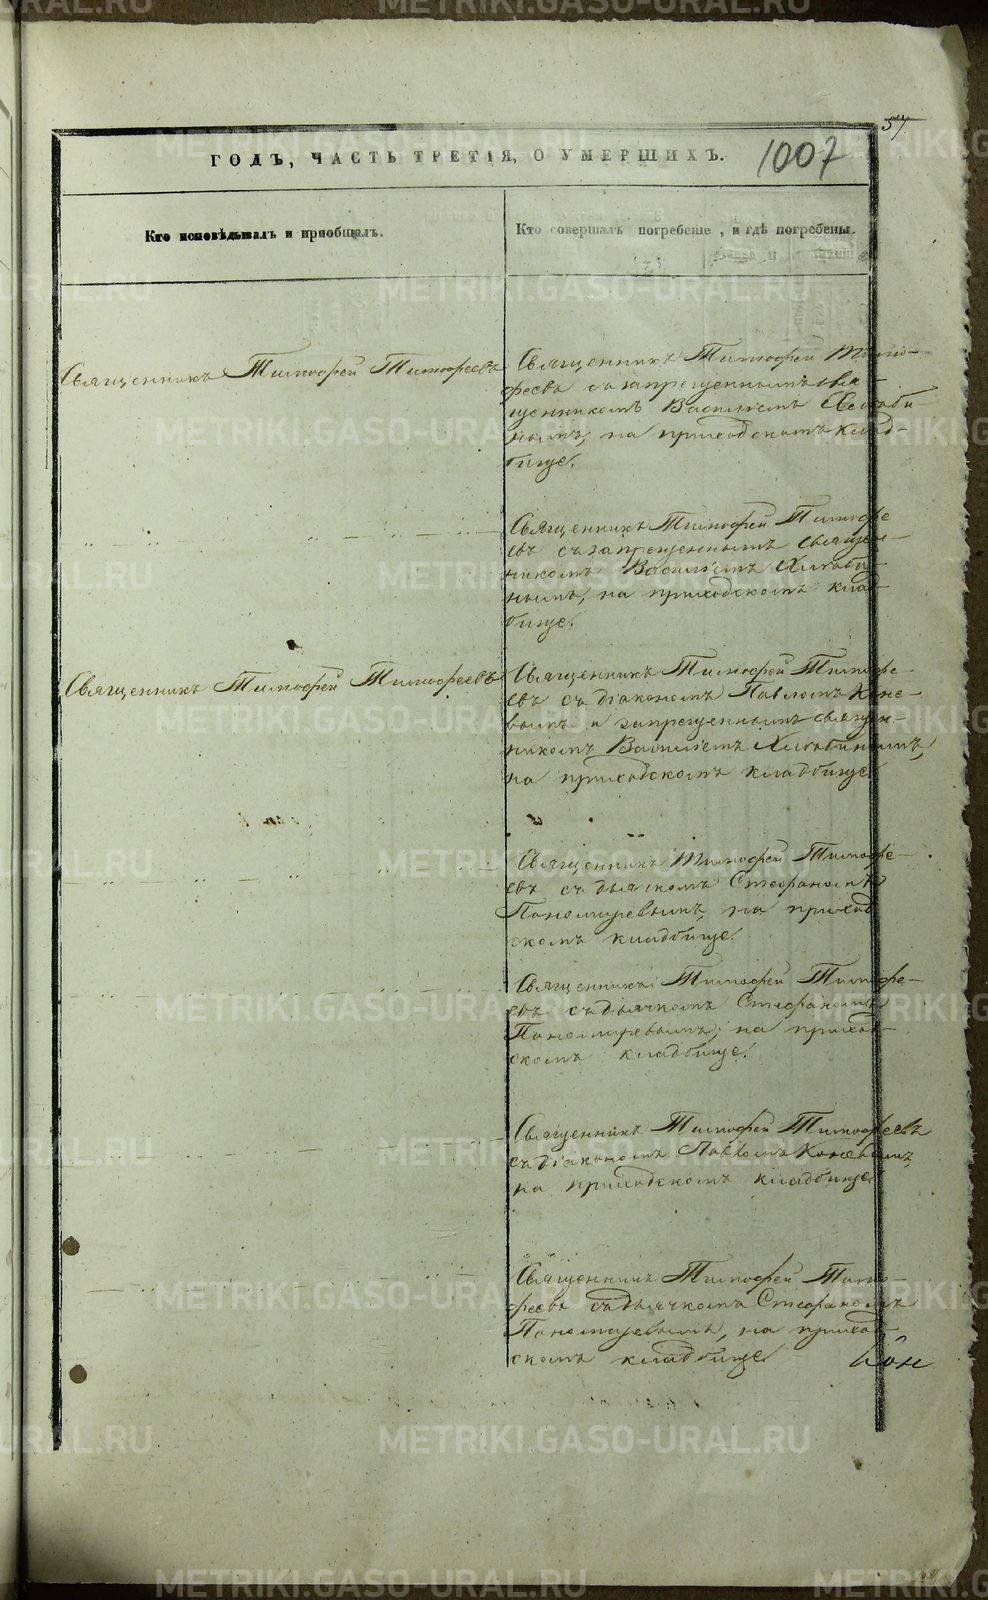 57
ГОДЪ, ЧАСТЬ ТРЕТІЯ, О УМЕРШИХЪ.
1007
Кто исповѣдывалъ и пріобщалъ.
Кто совершалъ погребеніе, и гдѣ погребены.
Священникъ Тимофей Тимофеевъ
Священникъ Тимофей Тимо-
феевъ съ запрещеннымъ свя-
щенникомъ Василіемъ Хлѣби
нымъ, на приходскомъ клад-
бище.
Священникъ Тимофей Тимофе
евъ съ запрещеннымъ священ-
никомъ Василіемъ Хлѣби-
нымъ, на приходскомъ клад-
бище.
Священникъ Тимофей Тимофеевъ
Священникъ Тимофей Тимофе-
евъ съ діакономъ Павломъ Коне-
вымъ и запрещеннымъ священ-
никомъ Василіемъ Хлѣбинымъ,
на приходскомъ кладбище.
Священникъ Тимофей Тимофе-
евъ съ дьячкомъ Стефаномъ
Пономаревымъ, на приход
скомъ кладбище.
Священникъ Тимофей Тимофе-
евъ съ дьячкомъ Стефаномъ
Пономаревымъ, на приход-
скомъ кладбище.
Священникъ Тимофей Тимофеевъ
съ діакономъ Павломъ Коневымъ,
на приходскомъ кладбище.
Священникъ Тимофей Тимо-
феевъ съ дьячкомъ Стефаномъ
Пономаревымъ, на приход-
скомъ кладбище.
METRIKI.GASO-URAL.RU